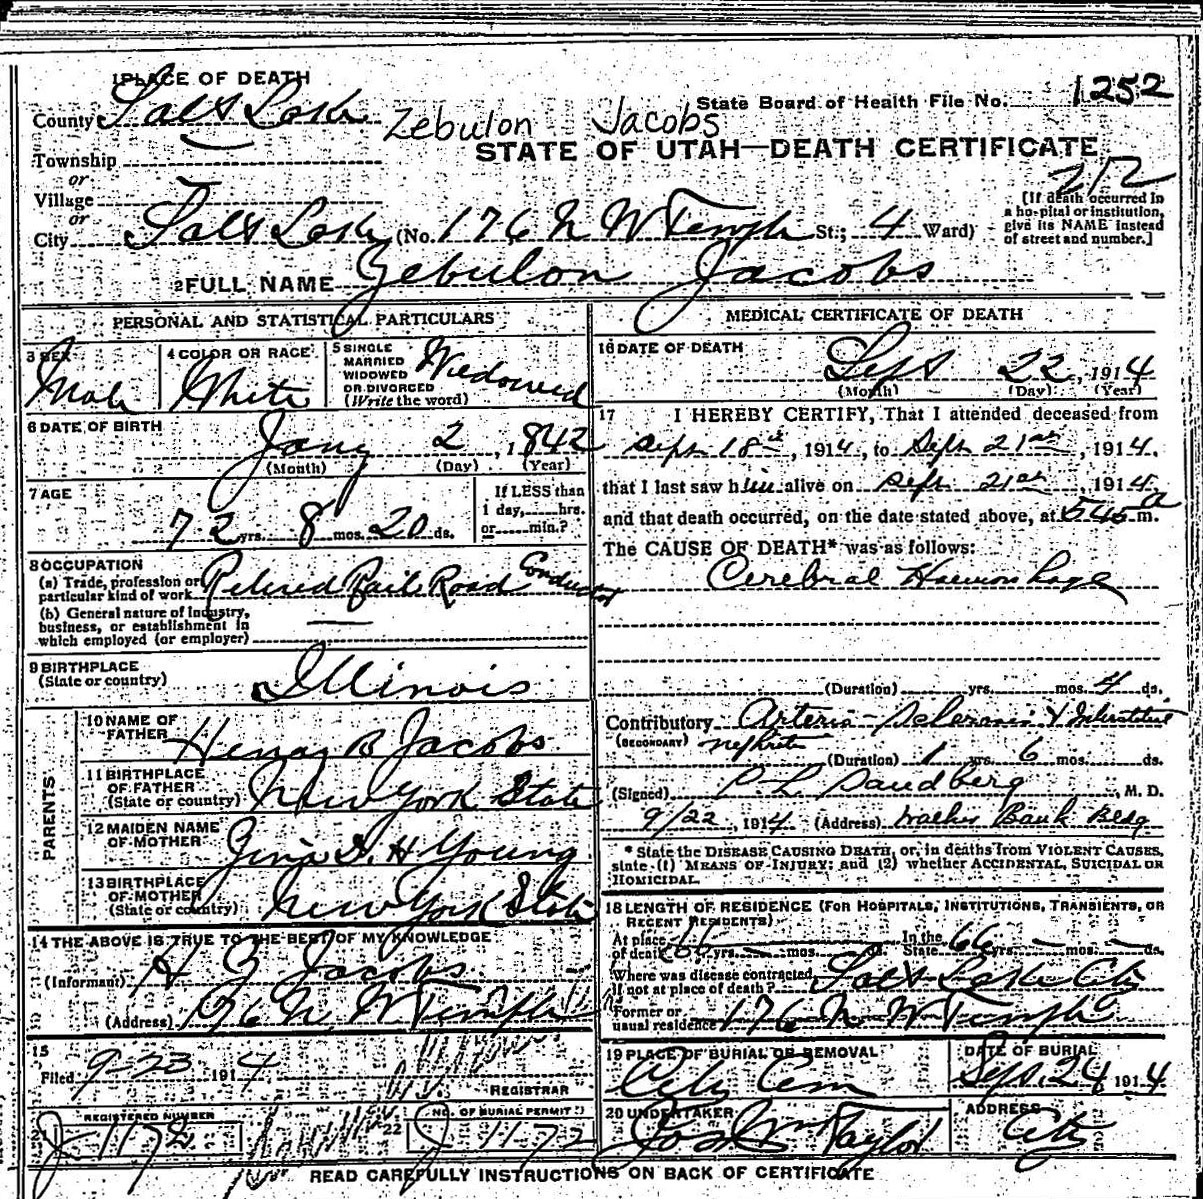 1 PLACE OF DEATH
State Board of Health File No. 1252
County Salt Lake
Zebulon Jacobs
STATE OF UTAH—DEATH CERTIFICATE
Township
or
212
Village
or
City Salt Lake (No. 176 N W Temple St.; 4 Ward)
[If death occurred in
a hospital or institution,
give its NAME instead
of street and number.]
2 FULL NAME Zebulon Jacobs
PERSONAL AND STATISTICAL PARTICULARS
3 SEX
Male
4 COLOR OR RACE
White
5 SINGLE
MARRIED
WIDOWED
OR DIVORCED
(Write the word)
Widowed
6 DATE OF BIRTH
Jany 2, 1842
(Month) (Day) (Year)
7 AGE
72 yrs. 8 mos. 20 ds.
If LESS than
1 day, hrs.
or min.?
8 OCCUPATION
(a) Trade, profession or
particular kind of work Retired Rail Road Conductor
(b) General nature of industry,
business, or establishment in
which employed (or employer)
9 BIRTHPLACE
(State or country) Illinois
PARENTS
10 NAME OF
FATHER Henry B Jacobs
11 BIRTHPLACE
OF FATHER
(State or country) New York State
12 MAIDEN NAME
OF MOTHER Zina D. H Young
13 BIRTHPLACE
OF MOTHER
(State or country) New York State
14 THE ABOVE IS TRUE TO THE BEST OF MY KNOWLEDGE
(Informant) H Z Jacobs
(Address) 176 N W Temple
15
Filed 9-23 1914
REGISTRAR
REGISTERED NUMBER
J-1172
22
NO. OF BURIAL PERMIT
J 1172
MEDICAL CERTIFICATE OF DEATH
16 DATE OF DEATH
Sept 22, 1914
(Month) (Day) (Year)
17 I HEREBY CERTIFY, That I attended deceased from
Sept 18th, 1914, to Sept 21st, 1914.
that I last saw him alive on Sept 21st, 1914.
and that death occurred, on the date stated above, at 545 a m.
The CAUSE OF DEATH* was as follows:
Cerebral Haemorrhage
(Duration) yrs. mos. 4 ds.
Contributory Arterio-Sclerosis & Interstitial
(SECONDARY) nephritis
(Duration) 1 yrs. 6 mos. ds.
(Signed) P. L. Sandberg, M. D.
9/22, 1914 (Address) Walker Bank Bldg
* State the DISEASE CAUSING DEATH, or, in deaths from VIOLENT CAUSES,
state (1) MEANS OF INJURY; and (2) whether ACCIDENTAL, SUICIDAL OR
HOMICIDAL.
18 LENGTH OF RESIDENCE (FOR HOSPITALS, INSTITUTIONS, TRANSIENTS, OR
RECENT RESIDENTS)
At place
of death 66 yrs. mos. ds. In the
State 66 yrs. mos. ds.
Where was disease contracted
if not at place of death? Salt Lake City
Former or
usual residence 176 N W Temple
19 PLACE OF BURIAL OR REMOVAL
City Cem
DATE OF BURIAL
Sept. 24 1914
20 UNDERTAKER
Jos Wm Taylor
ADDRESS
City
READ CAREFULLY INSTRUCTIONS ON BACK OF CERTIFICATE